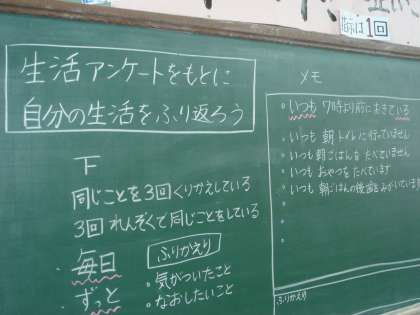 1回
生活アンケートをもとに
自分の生活をふり返ろう
下
同じことを3回くりかえしている
3回れんぞくで同じことをしている
・毎日
・ずっと
ふりかえり
・気がついたこと
・なおしたいこと
メモ
・いつも 7時より前におきている
・いつも 朝トイレに行っていません
・いつも 朝ごはんを たべていません
・いつも おやつを たべています
・いつも 朝ごはんの後歯をみがいています
ふりかえり